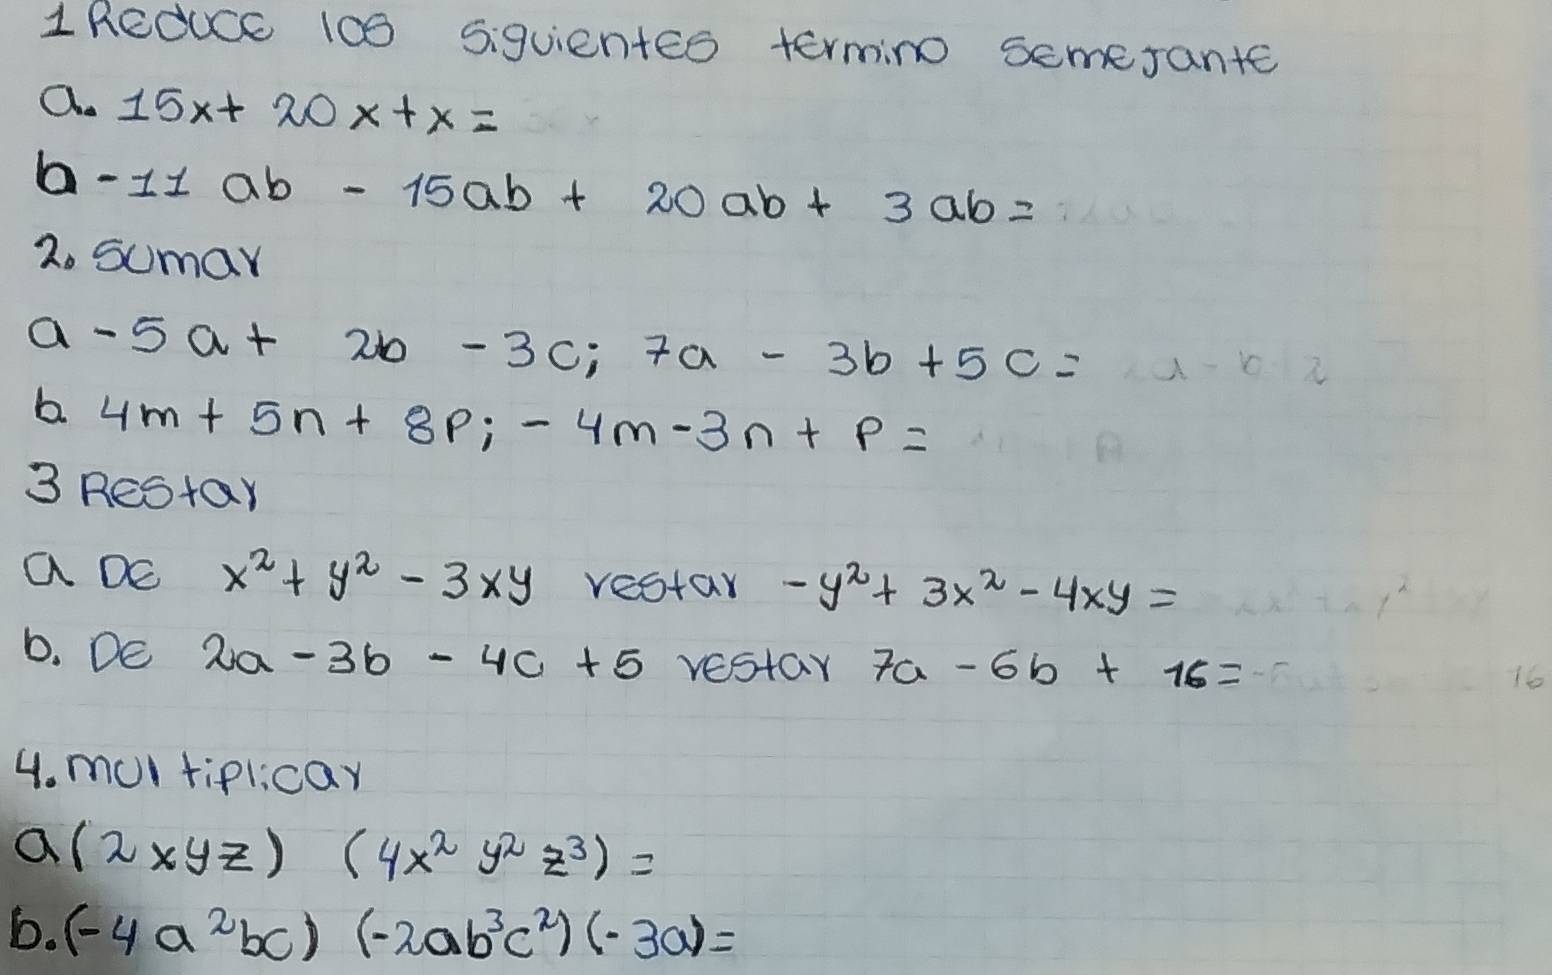 1 Reduce los siguientes termino semejante
a. 15x + 20x + x =
b - 11 ab - 15ab + 20 ab + 3 ab =
2. sumar
a - 5a + 2b - 3c; 7a - 3b + 5c =
b. 4m + 5n + 8p; - 4m - 3n + p =
3 Restar
a De x² + y² - 3xy restar - y² + 3x² - 4xy =
b. De 2a - 3b - 4c + 5 restar 7a - 6b + 16 =
4. multiplicar
a (2xyz) (4x² y² z³) =
b. (-4a²bc) (-2ab³c²) (-3a) =